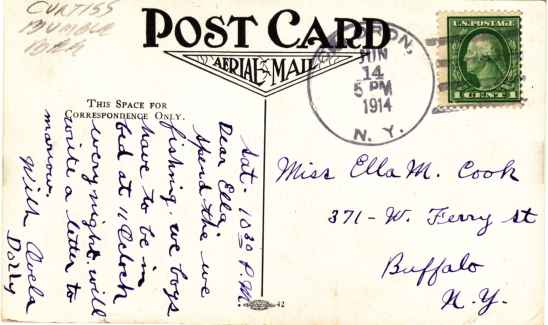 CURTISS
BUMBLE
IDEA
POST CARD
AERIAL MAIL
THIS SPACE FOR
CORRESPONDENCE ONLY.
Sat. 10 30 P.M.
Dear Ella;
Spend the we
fishing. we boys
have to be in
bed at 11 Oclock
every night. will
write a letter to
morrow.
With
Dorry
RON,
JUN
14
5 PM
1914
N. Y.
U.S. POSTAGE
1 CENT 1
Miss Ella M. Cook
371-W. Ferry St
Buffalo
N.Y.
42